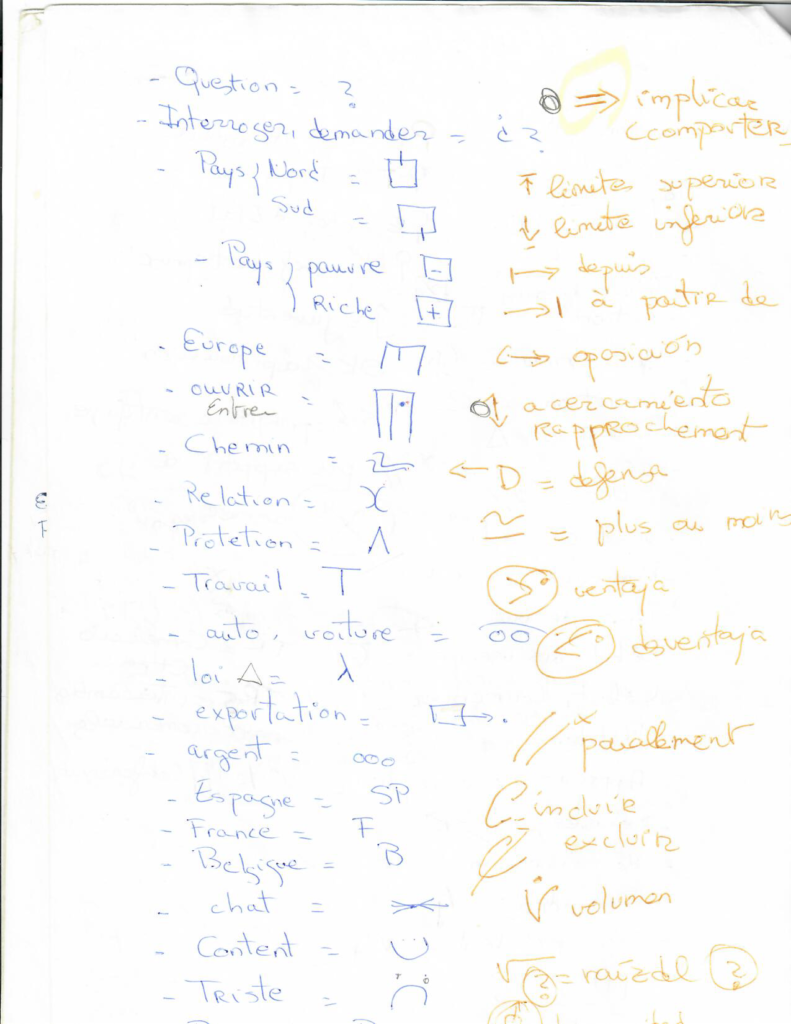 - Question = ?
- Interroger, demander = ¿ ?
- Pays { Nord =
Sud =
- Pays } pauvre -
Riche +
- Europe =
- OUVRIR =
Entrer
- Chemin =
- Relation =
- Protetion = Λ
- Travail = T
- auto, voiture =
- loi Δ = λ
- exportation =
- argent = ooo
- Espagne = SP
- France = F
- Belgique = B
- chat =
- Content =
- TRISTE =
E
F
⇒ implicar
(comporter
↑ limites superior
↓ limite inferior
↦ depuis
→| à partir de
oposición
↕ acercamiento
RAPPROchement
← D = defensa
≃ = plus ou moins
ventaja
desventaja
// parallement
incluir
excluir
V volumen
√? = raíz del ?